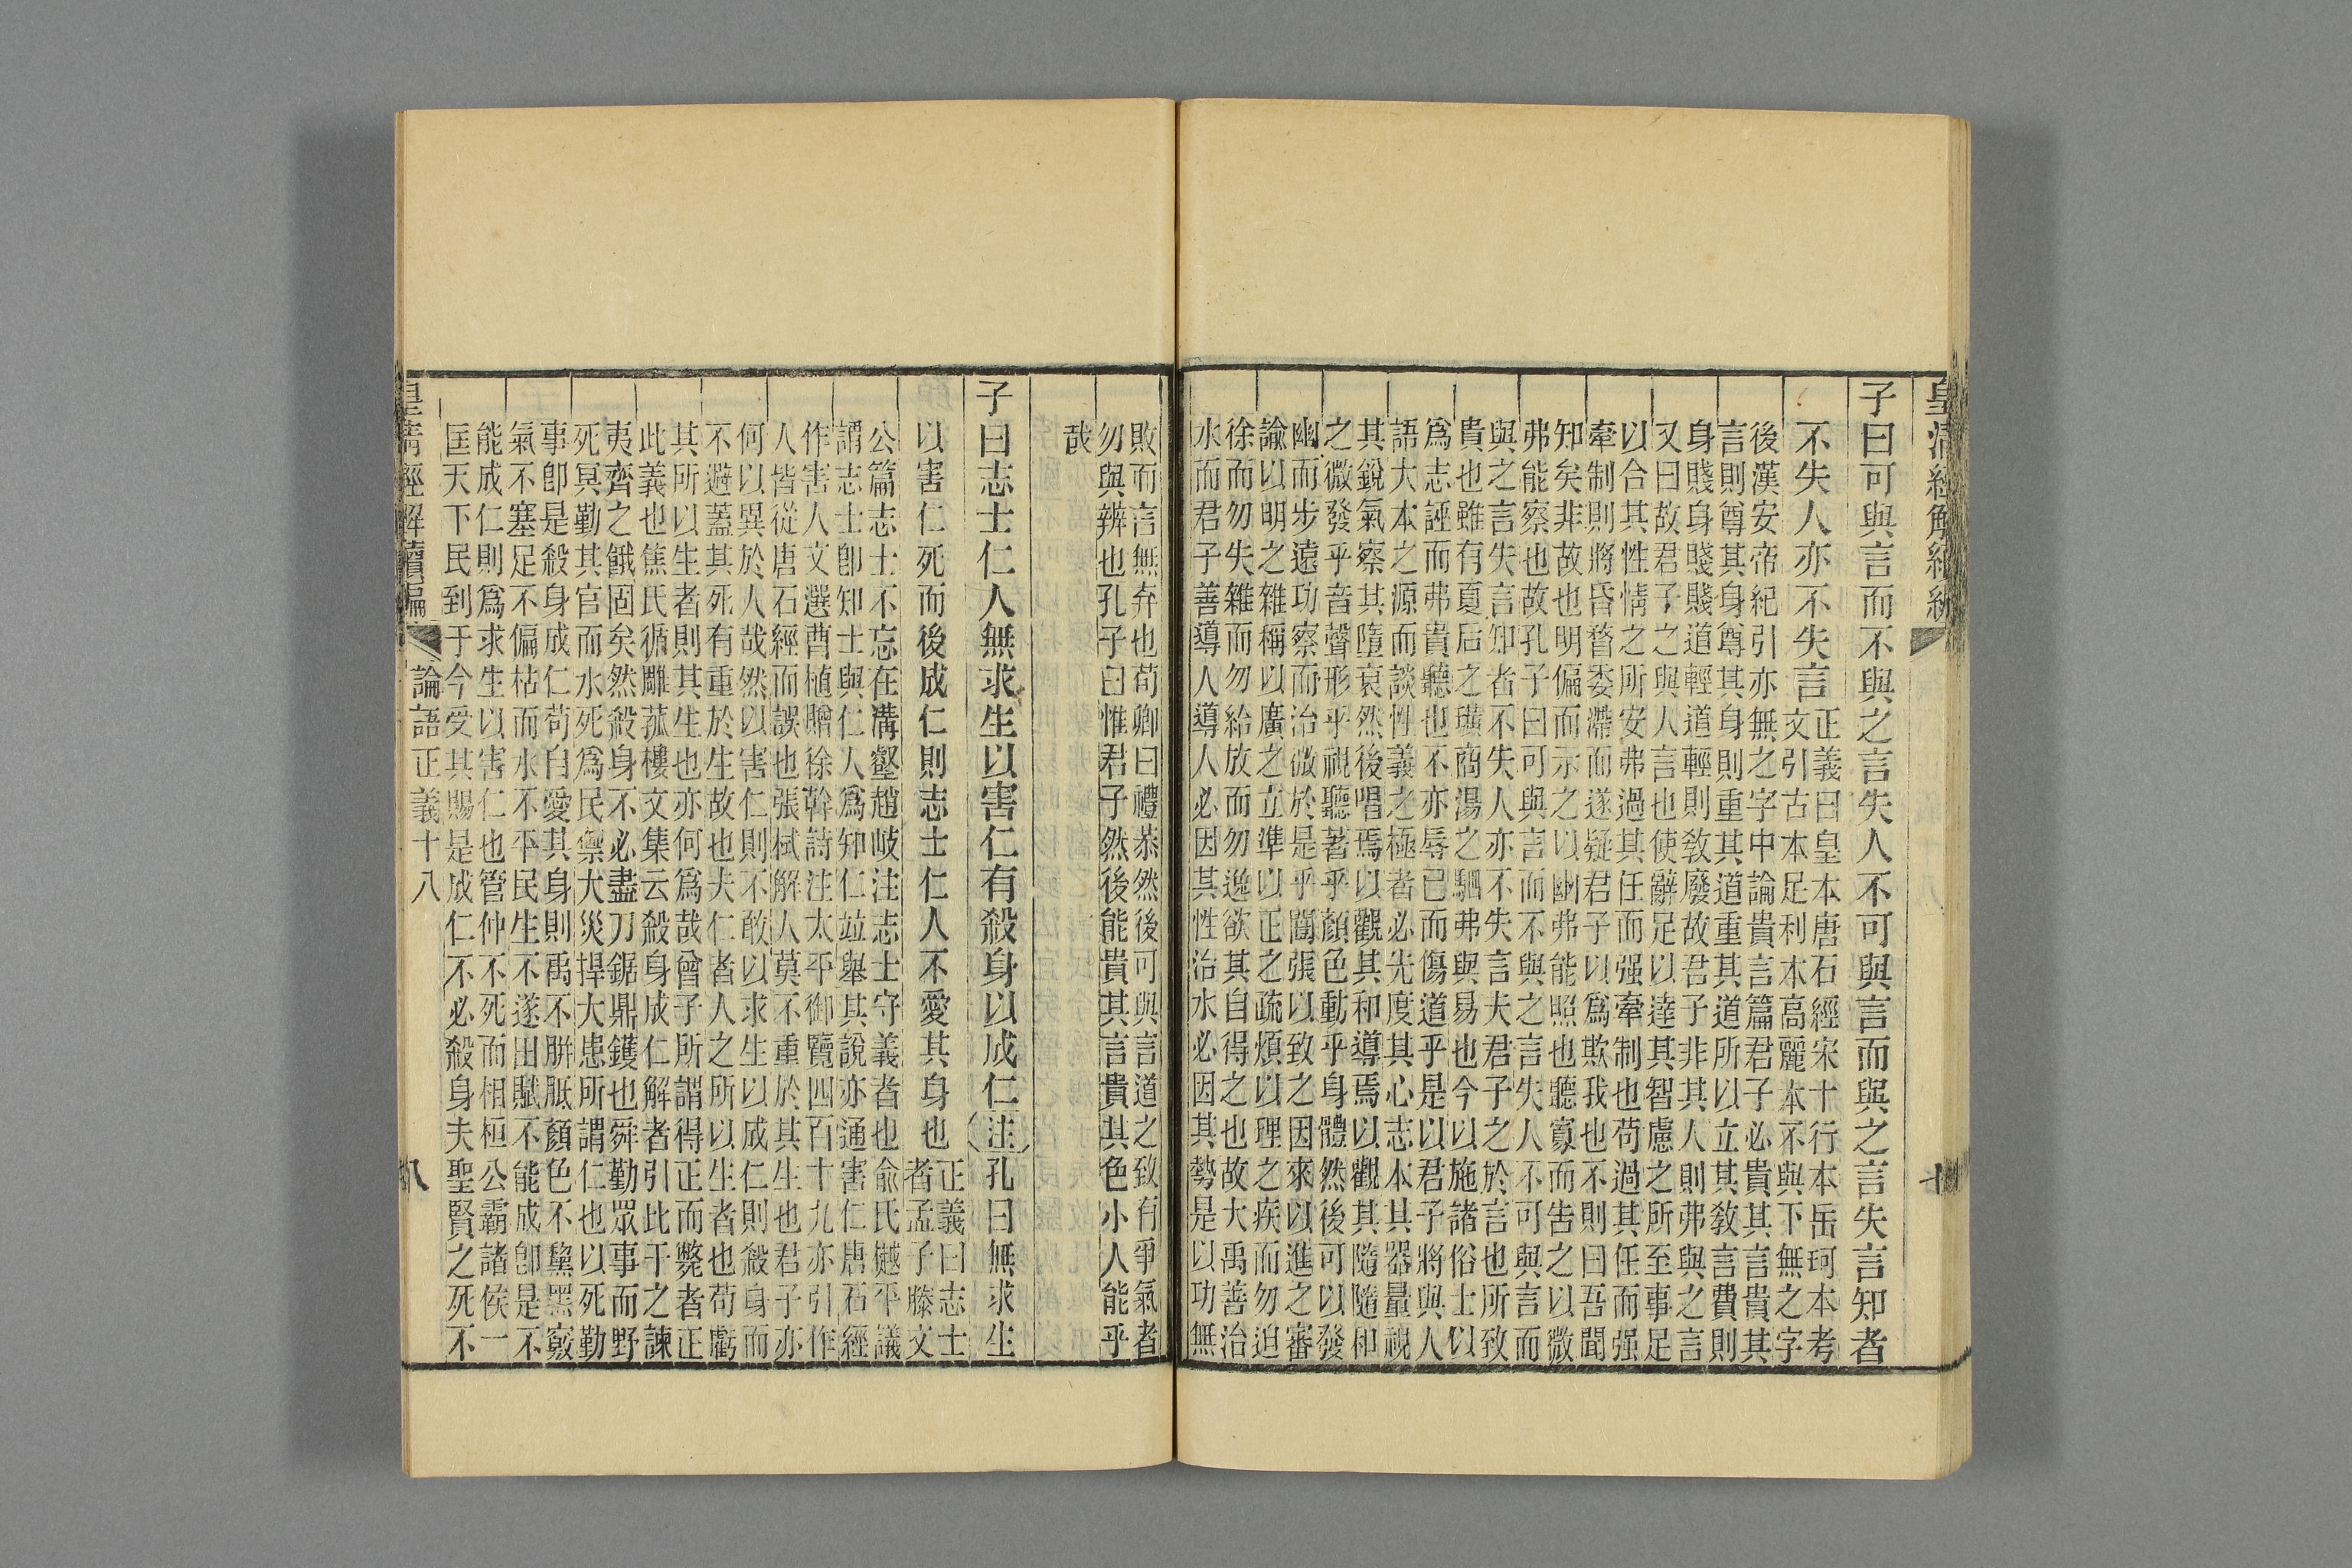 皇清經解續編
七
子曰可與言而不與之言失人不可與言而與之言失言知者
不失人亦不失言
正義曰皇本唐石經宋十行本岳珂本考
文引古本足利本高麗本不與下無之字
後漢安帝紀引亦無之字中論貴言篇君子必貴其言貴其
言則尊其身尊其身則重其道重其道所以立其敎言費則
身賤身賤賤道輕道輕則敎廢故君子非其人則弗與之言
又曰故君子之與人言也使辭足以達其智慮之所至事足
以合其性情之所安弗過其任而强牽制也苟過其任而强
牽制則將昏瞀委滯而遂疑君子以爲欺我也不則曰吾聞
知矣非故也明偏而示之以幽弗能照也聽寡而告之以微
弗能察也故孔子曰可與言而不與之言失人不可與言而
與之言失言知者不失人亦不失言夫君子之於言也所致
貴也雖有夏后之璜商湯之駟弗與易也今以施諸俗士以
爲志誣而弗貴聽也不亦辱己而傷道乎是以君子將與人
語大本之源而談性義之極者必先度其心志本其器量視
其銳氣察其墮衰然後唱焉以觀其和導焉以觀其隨隨和
之微發乎音聲形乎視聽著乎顏色動乎身體然後可以發
幽而步遠功察而治微於是乎闓張以致之因來以進之審
諭以明之雜稱以廣之立準以正之疏煩以理之疾而勿迫
徐而勿失雜而勿給放而勿逸欲其自得之也故大禹善治
水而君子善導人導人必因其性治水必因其勢是以功無
敗而言無弃也荀卿曰禮恭然後可與言道之致有爭氣者
勿與辨也孔子曰惟君子然後能貴其言貴其色小人能乎
哉
子曰志士仁人無求生以害仁有殺身以成仁注孔曰無求生
以害仁死而後成仁則志士仁人不愛其身也
正義曰志士
者孟子滕文
公篇志士不忘在溝壑趙岐注志士守義者也俞氏樾平議
謂志士卽知士與仁人爲知仁竝舉其說亦通害仁唐石經
作害人文選曹植贈徐幹詩注太平御覽四百十九亦引作
人皆從唐石經而誤也張栻解人莫不重於其生也君子亦
何以異於人哉然以害仁則不敢以求生以成仁則殺身而
不避蓋其死有重於生故也夫仁者人之所以生者也苟虧
其所以生者則其生也亦何爲哉曾子所謂得正而斃者正
此義也焦氏循雕菰樓文集云殺身成仁解者引比干之諫
夷齊之餓固矣然殺身不必盡刀鋸鼎鑊也舜勤眾事而野
死冥勤其官而水死爲民禦大災捍大患所謂仁也以死勤
事卽是殺身成仁苟自愛其身則禹不胼胝顏色不黧黑竅
氣不塞足不偏枯而水不平民生不遂田賦不能成卽是不
能成仁則爲求生以害仁也管仲不死而相桓公霸諸侯一
匡天下民到于今受其賜是成仁不必殺身夫聖賢之死不
皇清經解續編
論語正義十八
八